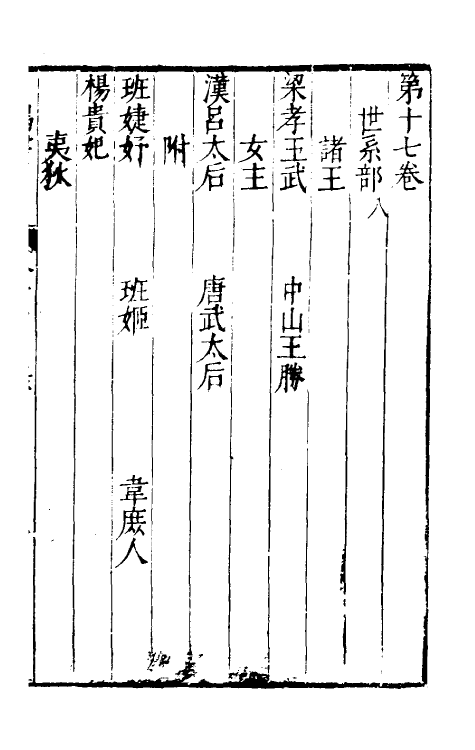 第十七卷
世系部八
諸王
梁孝王武　中山王勝
女主
漢呂太后　唐武太后
附
班婕妤　班姬　韋庶人
楊貴妃
夷狄